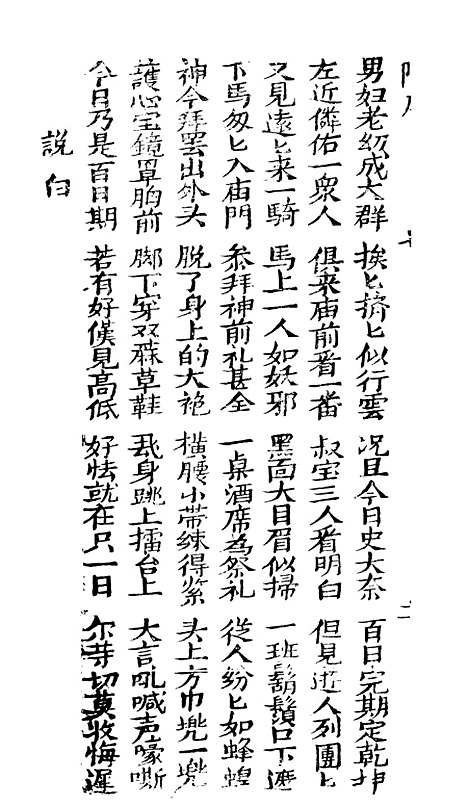 男妇老幼成大群 挨匕擠匕似行雲 况且今日史大奈 百日完期定乾坤
左近鄰佑一衆人 俱来庙前看一番 叔宝三人看明白 但見遊人列團匕
又見遠匕来一騎 馬上一人如妖邪 黑面大目眉似掃 一班鬍鬚口下遮
下馬匆匕入庙門 参拜神前礼甚全 一桌酒席為祭礼 從人紛匕如蜂蝗
神今拜罢出外头 脱了身上的大袍 橫腰小带練得紧 头上方巾兠一兠
護心宝鏡罩胸前 脚下穿双蔴草鞋 身跳上擂台上 大言吼喊声嚎嘶
今日乃是百日期 若有好漢見高低 好怯就在只一日 尔等切莫收悔遲
說白